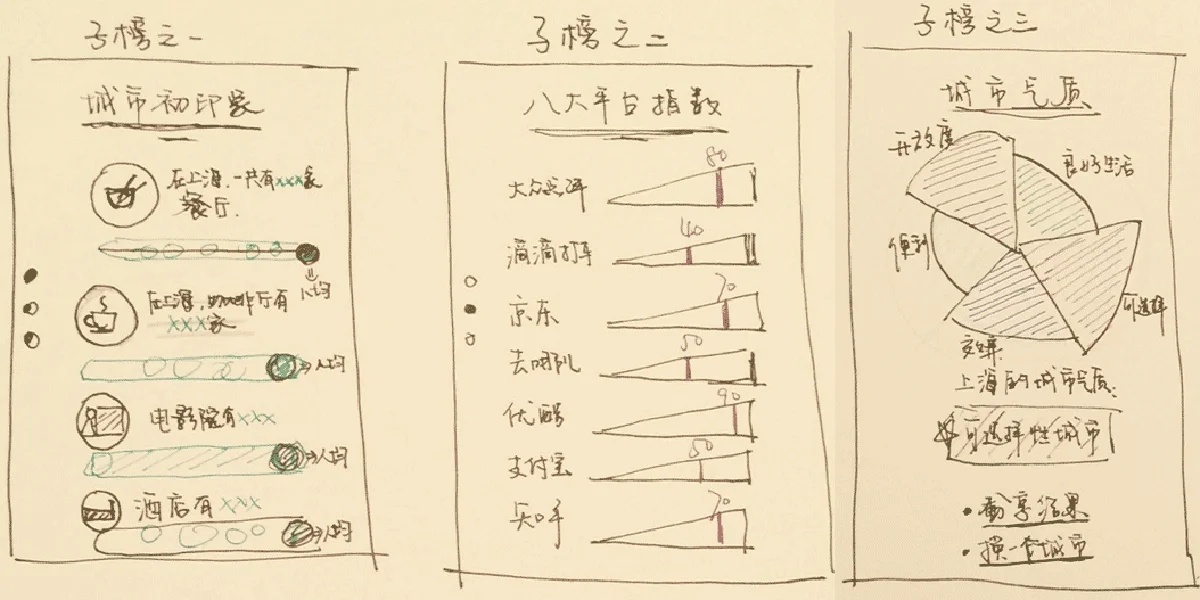 子榜之一
城市初印象
在上海,一共有xxx家
餐厅.
人均
在上海,咖啡厅有
xxx家
人均
电影院有xxx
人均
酒店有xxx
人均
子榜之二
八大平台指数
大众点评 80
滴滴打车 40
京东 70
去哪儿 50
优酷 90
支付宝 50
知乎 70
子榜之三
城市气质
开放度
良好生活
便利
可选择
上海的城市气质:
可选择性城市
分享结果
换一个城市